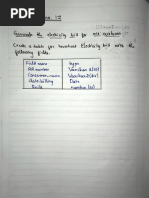 Generate the electricity bill for
Create a table for household Electricity bill with the
following fields.
Field name type
RR number Varchar2(10)
Consumer name Varchar2(25)
Date-billing Date
Units number (4)